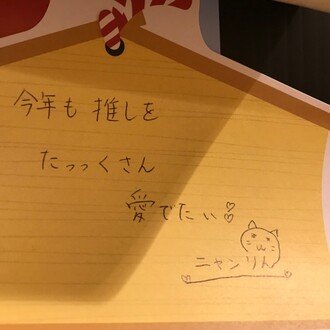 今年も推しを
たっっくさん
愛でたい
ニャンりん